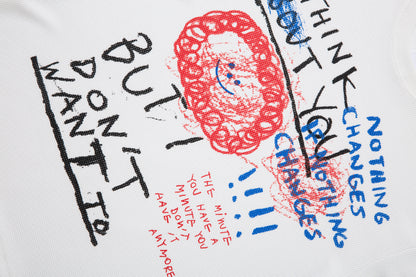 THINK
DON'T YOU
BUT I
DON'T
WANT TO
NOTHING
CHANGES
NOTHING
CHANGES
!!!!
THE MINUTE
YOU HAVE A
MINUTE YOU
DON'T
HAVE IT
ANYMORE